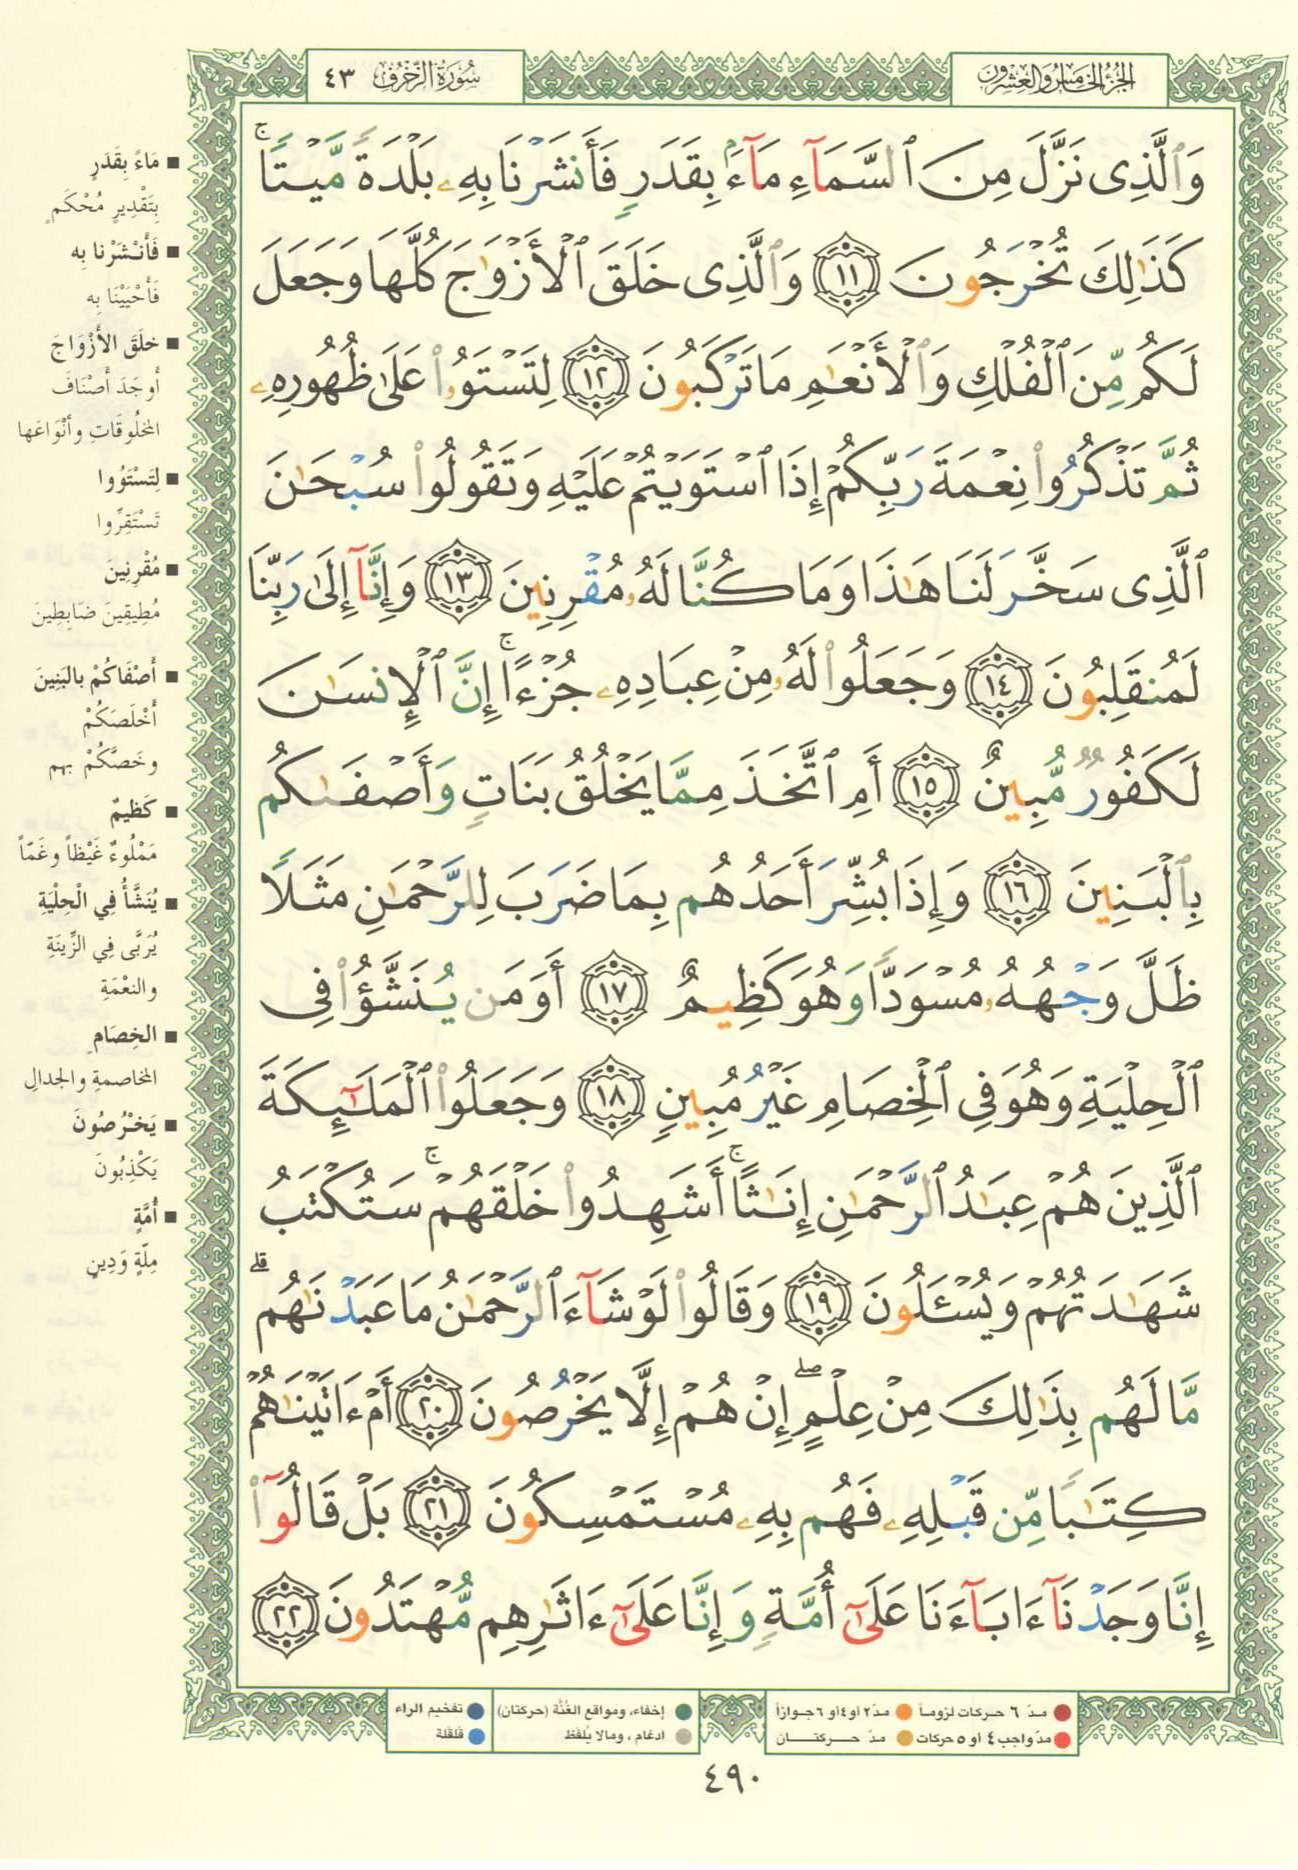 الجزء الخامس والعشرون
سورة الزخرف ٤٣
وَٱلَّذِى نَزَّلَ مِنَ ٱلسَّمَآءِ مَآءَۢ بِقَدَرٍ فَأَنشَرْنَا بِهِۦ بَلْدَةً مَّيْتًا ۚ
كَذَٰلِكَ تُخْرَجُونَ ﴿١١﴾ وَٱلَّذِى خَلَقَ ٱلْأَزْوَٰجَ كُلَّهَا وَجَعَلَ
لَكُم مِّنَ ٱلْفُلْكِ وَٱلْأَنْعَٰمِ مَا تَرْكَبُونَ ﴿١٢﴾ لِتَسْتَوُۥا۟ عَلَىٰ ظُهُورِهِۦ
ثُمَّ تَذْكُرُوا۟ نِعْمَةَ رَبِّكُمْ إِذَا ٱسْتَوَيْتُمْ عَلَيْهِ وَتَقُولُوا۟ سُبْحَٰنَ
ٱلَّذِى سَخَّرَ لَنَا هَٰذَا وَمَا كُنَّا لَهُۥ مُقْرِنِينَ ﴿١٣﴾ وَإِنَّآ إِلَىٰ رَبِّنَا
لَمُنقَلِبُونَ ﴿١٤﴾ وَجَعَلُوا۟ لَهُۥ مِنْ عِبَادِهِۦ جُزْءًا ۚ إِنَّ ٱلْإِنسَٰنَ
لَكَفُورٌ مُّبِينٌ ﴿١٥﴾ أَمِ ٱتَّخَذَ مِمَّا يَخْلُقُ بَنَاتٍ وَأَصْفَىٰكُم
بِٱلْبَنِينَ ﴿١٦﴾ وَإِذَا بُشِّرَ أَحَدُهُم بِمَا ضَرَبَ لِلرَّحْمَٰنِ مَثَلًا
ظَلَّ وَجْهُهُۥ مُسْوَدًّا وَهُوَ كَظِيمٌ ﴿١٧﴾ أَوَمَن يُنَشَّؤُا۟ فِى
ٱلْحِلْيَةِ وَهُوَ فِى ٱلْخِصَامِ غَيْرُ مُبِينٍ ﴿١٨﴾ وَجَعَلُوا۟ ٱلْمَلَٰٓئِكَةَ
ٱلَّذِينَ هُمْ عِبَٰدُ ٱلرَّحْمَٰنِ إِنَٰثًا ۚ أَشَهِدُوا۟ خَلْقَهُمْ ۚ سَتُكْتَبُ
شَهَٰدَتُهُمْ وَيُسْـَٔلُونَ ﴿١٩﴾ وَقَالُوا۟ لَوْ شَآءَ ٱلرَّحْمَٰنُ مَا عَبَدْنَٰهُم ۗ
مَّا لَهُم بِذَٰلِكَ مِنْ عِلْمٍ ۖ إِنْ هُمْ إِلَّا يَخْرُصُونَ ﴿٢٠﴾ أَمْ ءَاتَيْنَٰهُمْ
كِتَٰبًا مِّن قَبْلِهِۦ فَهُم بِهِۦ مُسْتَمْسِكُونَ ﴿٢١﴾ بَلْ قَالُوٓا۟
إِنَّا وَجَدْنَآ ءَابَآءَنَا عَلَىٰٓ أُمَّةٍ وَإِنَّا عَلَىٰٓ ءَاثَٰرِهِم مُّهْتَدُونَ ﴿٢٢﴾
■ مَاءً بِقَدَرٍ
بِتَقْدِيرٍ مُحْكَمٍ
■ فَأَنْشَرْنا بِه
فَأَحْيَيْنَا بِه
■ خَلَقَ الأَزْوَاجَ
أَوجَدَ أَصْنَافَ
المَخْلُوقَاتِ وأنْوَاعَها
■ لِتَسْتَوُوا
تَسْتَقِرُّوا
■ مُقْرِنِينَ
مُطِيقِينَ ضَابِطِينَ
■ أَصْفَاكُمْ بالبَنِينَ
أَخْلَصَكُمْ
وخَصَّكُمْ بهم
■ كَظيمٌ
مَمْلُوءٌ غَيْظاً وغَمّاً
■ يُنَشَّأُ فِي الْحِلْيَةِ
يُرَبَّى فِي الزِّينَةِ
والنعْمَةِ
■ الخِصَامِ
المخاصمةِ والجدالِ
■ يَخْرُصُونَ
يَكْذِبُونَ
■ أُمَّةٍ
مِلَّةٍ وَدِينٍ
مدّ ٦ حركات لزوماً مدّ ٢ أو ٤ أو ٦ جوازاً
مدّ واجب ٤ أو ٥ حركات مدّ حركتان
إخفاء، ومواقع الغُنَّة (حركتان) تفخيم الراء
ادغام ، ومالا يُلفَظ قلقلة
٤٩٠